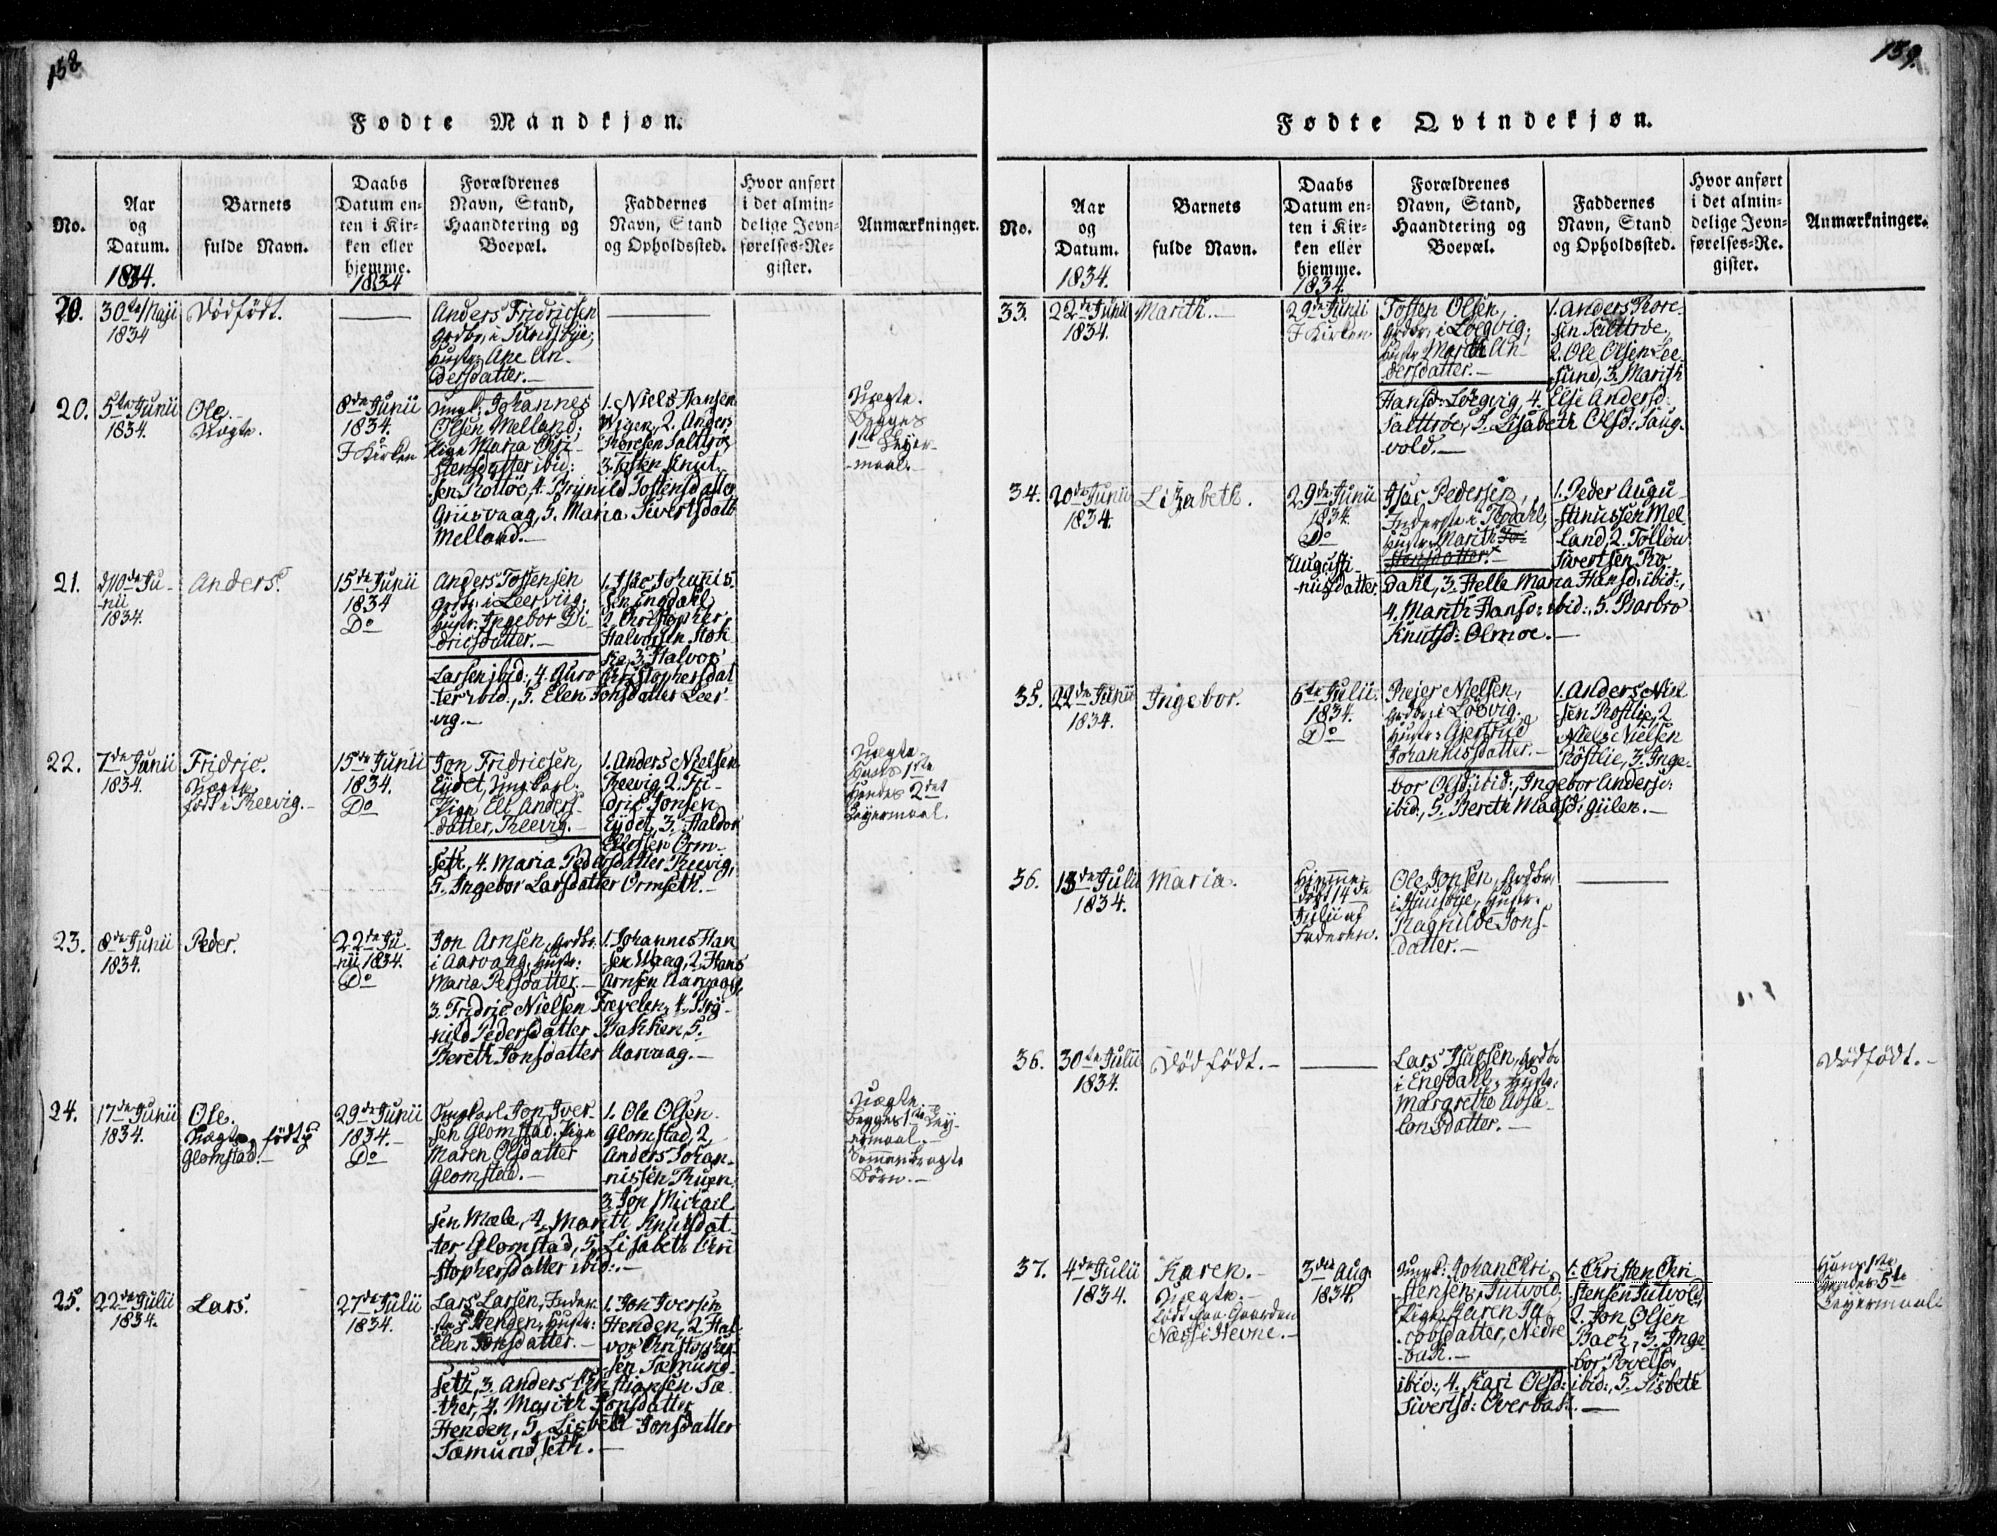 158
Fødte Mandkjøn.
No.
Aar
og
Datum.
1834.
Barnets
fulde Navn.
Daabs
Datum en-
ten i Kir-
ken eller
hjemme.
1834
Forældrenes
Navn, Stand,
Haandtering og
Boepæl.
Faddernes
Navn, Stand
og Opholdssted.
Hvor anført
i det almin-
delige Jevn-
førelses-Re-
gister.
Anmærkninger.
20.
30te Maji
1834
Dödfödt.
Anders Fridricsen
Grdbr: i
Hustr: Ane An-
dersdatter.—
20.
5te Junii
1834.
Ole.—
Uægte.
8de Junii
1834.
I Kirken
Ungk: Johannes
Olsen Melland;
Pige Maria Chri-
stensdatter ibid:
1. Niels Hansen
Wigen, 2. Anders
Thoresen Salttrøe
3. Tosten Knut-
sen Rottöe, 4. Brynild Tostensdatter
Griisvaag, 5. Maria Sivertsdatt
Melland.—
Uægte.
Begges
1ste Leyer-
maal.
21.
d 10de Ju-
nii
1834.
Anders.
15de Junii
1834
Do
Anders Tostensen
Grdbr: i Leervig;
Hustr: Ingebor Di-
dricsdatter.—
1. Isac Johannis
sen Engdahl,
2. Christopher
Halvorsen Stok
ke, 3. Halvor
Larsen ibid:, 4. Guro Christophersdat
ter ibid:, 5. Elen Jonsdatter Leer
vig.—
22.
7de Junii
1834.
Fridric.
Uægte
født i Reevig.—
15de Junii
1834.
Do
Jon Fridricsen,
Eydet, Ungkarl.
Pige Eli Anders
datter, Reevig.—
1. Anders Nielsen
Reevig, 2. Fri-
dric Jonsen
Eydet, 3. Haldor
Ellefsen Orm-
seth, 4. Maria Pedersdatter Reevig,
5. Ingebor Larsdatter Ormseth.—
Uægte
Hans 1ste
Hendes 2det
Leyermaal.
23.
8de Junii
1834.
Peder.
22de Ju-
nii 1834.
Do
Jon Arnsen, Grdbr.
i Aarvaag, Hustr:
Maria Persdatter.—
1. Johannes Han
sen Waag, 2. Hans
Arnsen Aarvaag,
3. Fridric Nielsen Frevelen, 4. Bryg-
nild Pedersdatter Bakken, 5.
Bereth Jonsdatter Aarvaag.—
24.
17de Junii
1834.
Ole.
Uægte, født p
Glomstad.—
29de Junii
1834.—
Do
Ungkarl Jon Iver-
sen Glomstad, Pige
Maren Olsdatter
Glomstad.—
1. Ole Olsen
Glomstad, 2.
Anders Johan-
nissen Ruen
3. Jon Michael
sen Mæle, 4. Marith Knutsdat
ter Glomstad, 5. Lisabeth Chri
stophersdatter ibid:.—
Uægte.
Begges 1ste Ley-
ermaal.—
Sammenbragte
Børn.—
25.
22de Julii
1834.
Lars.
27de Julii
1834.
Lars Larsen, Inder-
ste i Henden, Hustr:
Elen Jonsdatter.—
1. Jon Iversen
Henden, 2. Hal
vor Christopher
sen Sæmund-
seth, 3. Anders Christiansen Sæ
ther, 4. Marith Jonsdatter
Henden, 5. Lisbeth Jonsdatter
Sæmundseth.—
159.
Fødte Qvindekjøn.
No.
Aar
og
Datum.
1834.
Barnets
fulde Navn.
Daabs
Datum en-
ten i Kir-
ken eller
hjemme.
1834.
Forældrenes
Navn, Stand,
Haandtering og
Boepæl.
Faddernes
Navn, Stand
og Opholdssted.
Hvor anført
i det almin-
delige Jevn-
førelses-Re-
gister.
Anmærkninger.
33.
22de Junii
1834.
Marith.—
29de Junii
I Kirken
Tosten Olsen,
Grdbr: i Loegvig;
Hustr Marith An-
dersdatter.—
1. Anders Tore-
sen Salttroe,
2. Ole Olsen Lee-
sund, 3. Marith
Hansd: Löegvig, 4. Else Andersd:
Salttröe, 5. Lisabeth Olsd: Saug-
vold.—
34.
20de Junii
1834.
Lisabeth.
29de Junii
1834.
Do
Augusti-
nusdatter
Isac Pedersen,
Inderste i Rodahl,
Hustr: Marith To-
stensdatter.
1. Peder Augu-
stinussen Mel-
land, 2. Tollöw
Sivertsen Ro-
dahl, 3. Helle Maria Hansd: ibid:,
4. Marith Hansd: ibid:, 5. Barbro
Knutsd: Olmoe.—
35.
22de Junii
1834.
Ingebor.
6te Julii
1834.
Do
Reier Nielsen,
Grdbr: i Lösvig.
Hustr: Gjertrud
Johannisdatter.—
1. Anders Niel
sen Roslie, 2
Niels Nielsen
Röstlie, 3. Inge-
bor Olsd: ibid:, Ingebor Andersd:
ibid:, 5. Bereth Madsd: Gülen.—
36.
13de Julii
1834.
Maria.
Hjemme-
døbt 14de
Julii af
Faderen.
Ole Jonsen, Grdbr:
i Huusbye, Hustr:
Ragnilde Jons-
datter.—
36.
30te Julii
1834.
Dödfödt.—
Lars Isacsen, Grdbr
i Engdahl, Hustr:
Margrethe Absa-
lonsdatter.—
Dödfödt.—
37.
4de Julii
1834.
Karen.—
Uægte.—
Född paa Gaarden
Næss i Hevne.—
3die Aug.
1834.
Ungk: Johan Chri-
stensen Tutvold,
Pige Karen Ja-
cobsdatter, Nedre
bak.—
1. Christen Chri-
stensen Tutvold,
2. Jon Olsen
Bach, 3. Inge-
bor Povelsd:
ibid:, 4. Kari Olsd: ibid:, 5. Lisbeth
Sivertsd: Overbak.—
Hans 1ste
Hendes 5te
Leyermaal.